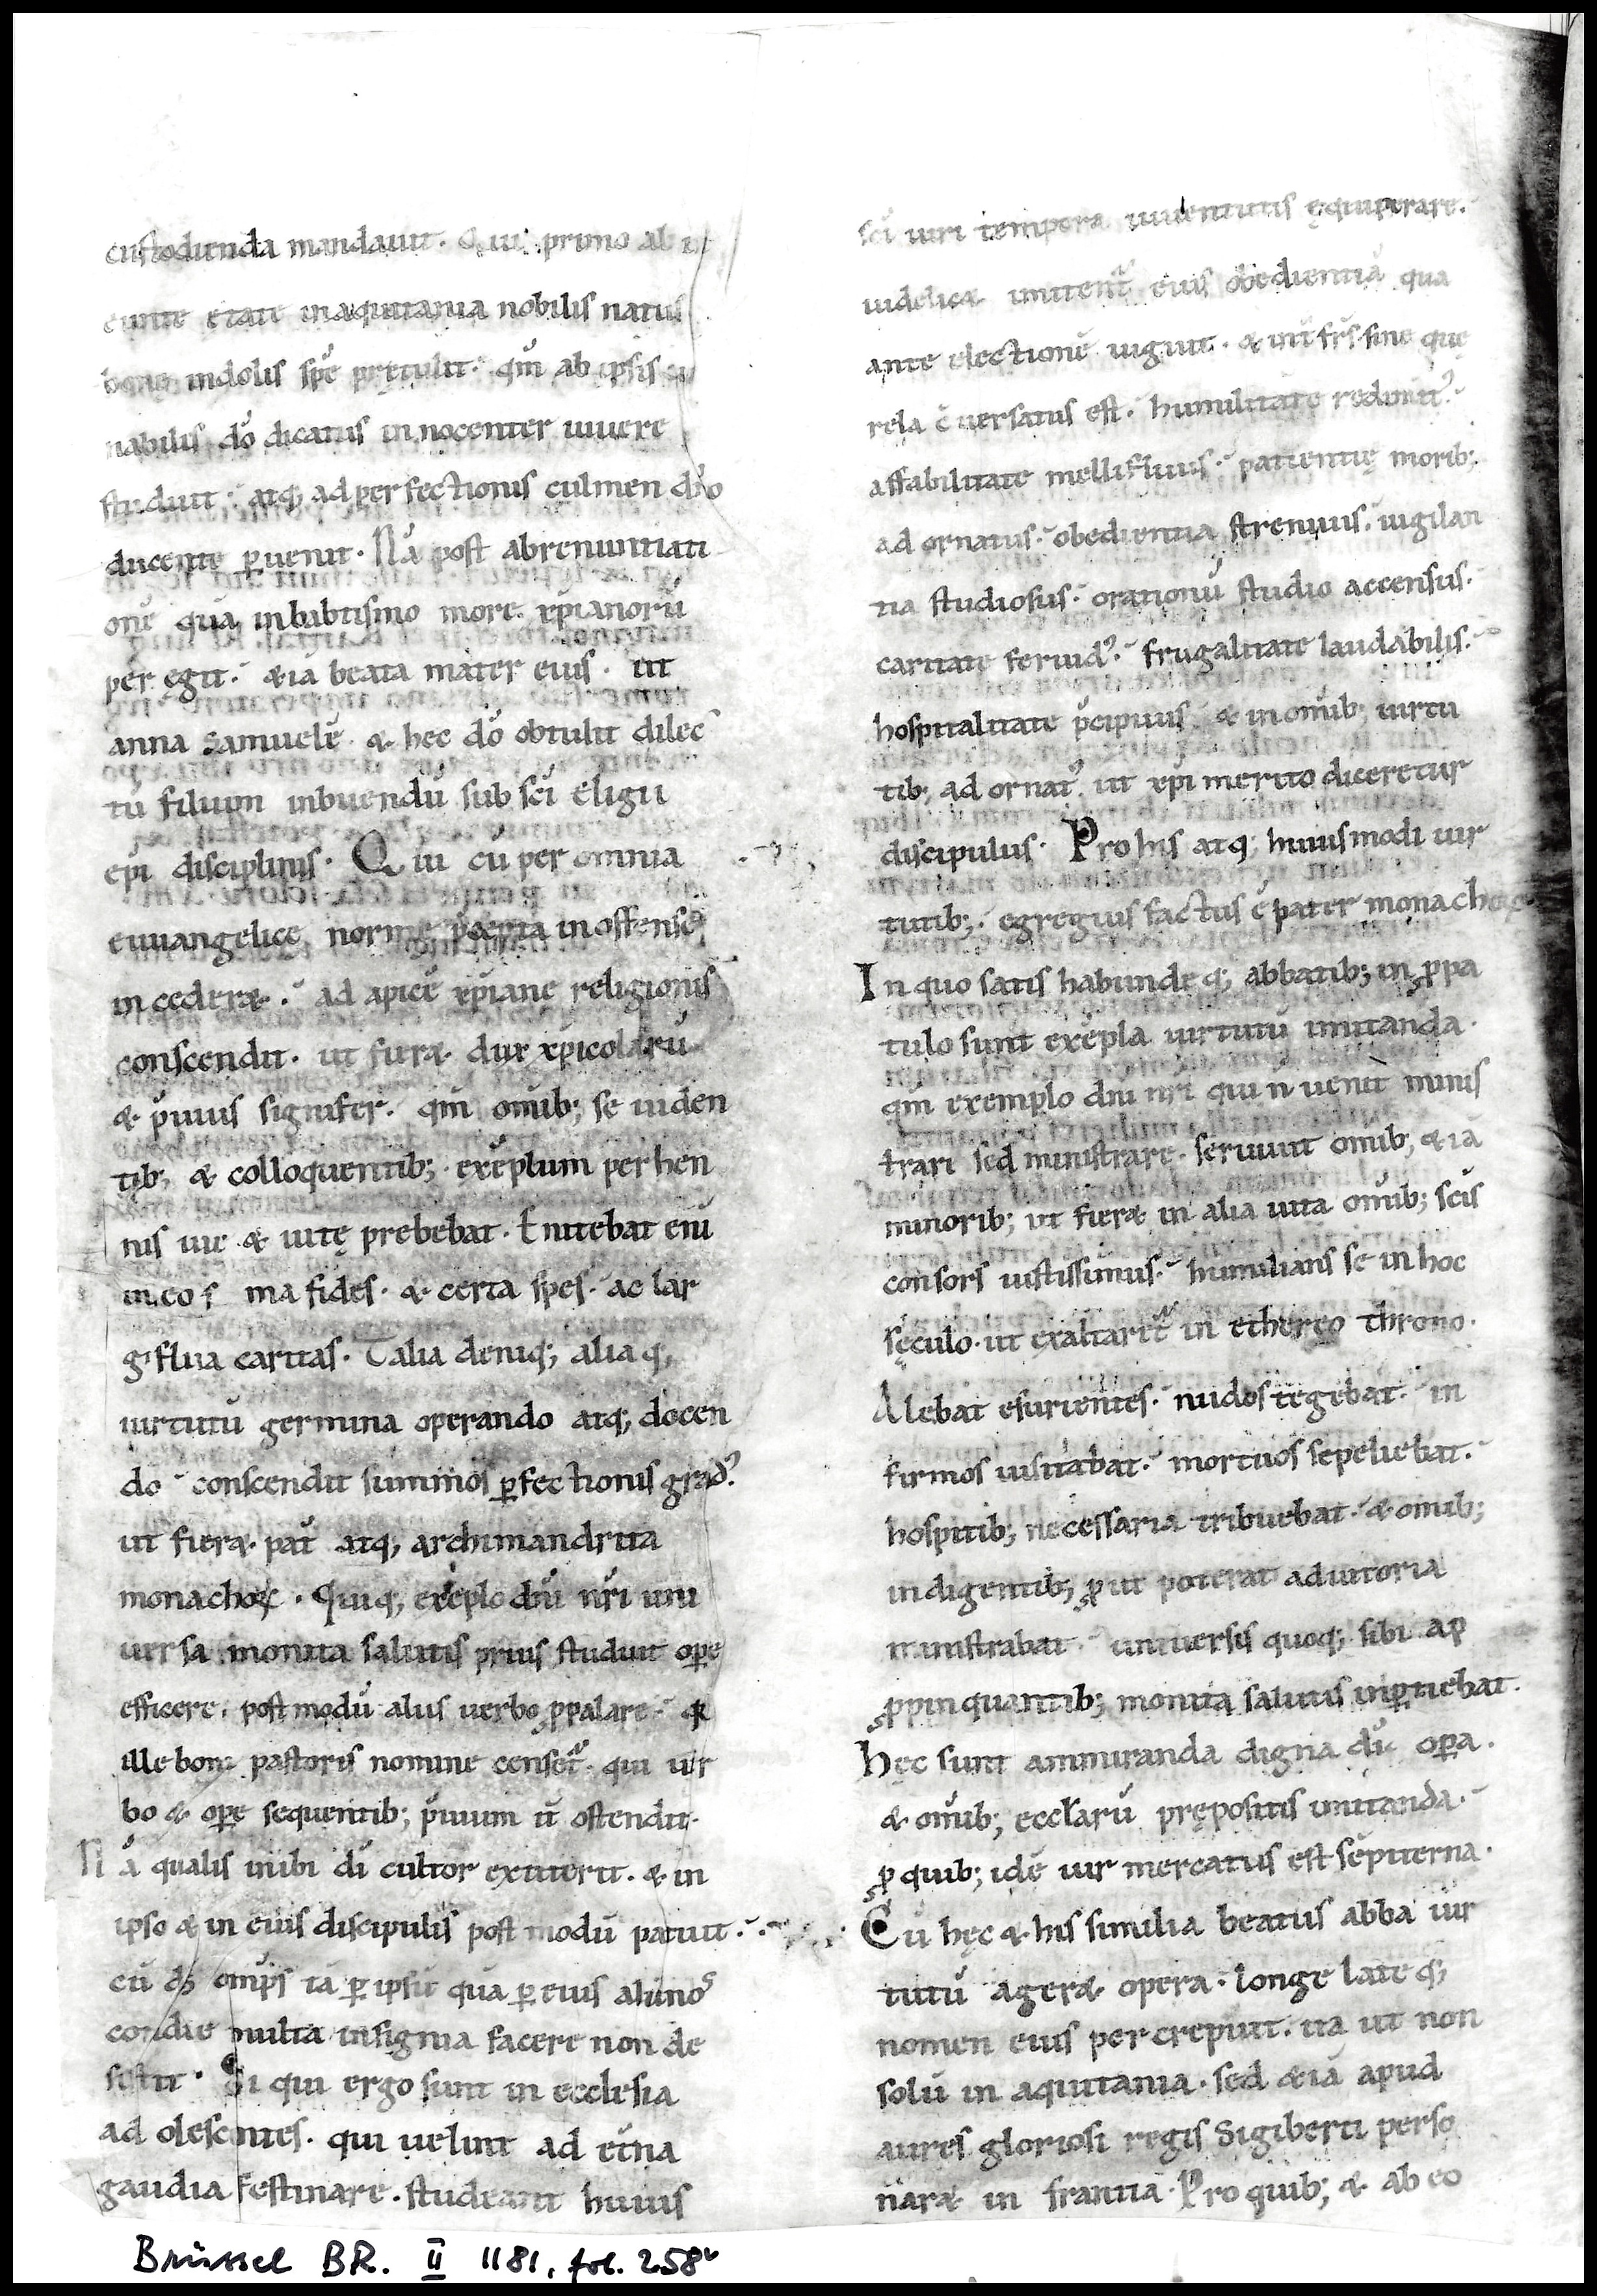 custodienda mandauit. Qui primo ab in
eunte etate in aquitania nobilis natus
bone indolis spē pretulit. qm̄ ab ipsis cu
nabulis dō dicatus innocenter uiuere
studuit. atq; ad perfectionis culmen dn̄o
ducente ꝑuenit. Nā post abrenuntiati
onē quā in babtismo more xp̄ianorū
peregit. &iā beata mater eius. ut
anna samuelē & hec dō obtulit dilec
tū filium inbuendū sub sc̄i eligii
ep̄i disciplinis. Qui cū per omnia
euuangelice norme p̄cepta inoffense
incederet. ad apicē xp̄iane religionis
conscendit. ut fieret dux xp̄icolarū
& p̄uius signifer. qm̄ om̄ib; se uiden
tib; & colloquentib; exēplum perhen
nis uie & uitę prebebat. Enitebat eni
in eo ma fides. & certa spes. ac lar
giflua caritas. Talia deniq; aliaq;
uirtutū germina operando atq; docen
do conscendit summos ꝑfectionis grad᾽
ut fieret pat̄ atq; archimandrita
monachoꝝ. Quiq; exēplo dn̄i nr̄i uni
uersa monita salutis prius studuit oꝑe
efficere. postmodū aliis uerbo ꝓpalare.
ille boni pastoris nomine censet᷑. qui uer
bo & oꝑe sequentib; p̄uium it̄ ostendit.
Nā qualis inibi dī cultor extiterit. & in
ipso & in eius discipulis postmodū patuit.
cū ds̄ omīps tā ꝑ ipsū quā ꝑ eius alūnos
cotidie multa insignia facere non de
sistit. Si qui ergo sunt in ecclesia
adolescentes. qui uelint ad et̄na
gaudia festinare. studeant huius
sc̄i uiri tempora iuuentutis ęquiperare.
uidelicet imitent᷑ eius obedientiā qua
ante electionē uiguit. & int̄ frs̄ sine que
rela c̄uersatus est. humilitate redimit᾽.
affabilitate mellifluus. patientię morib;
adornatus. obedientia strenuus. uigilan
tia studiosus. orationū studio accensus.
caritate feruid᾽. frugalitate laudabilis.
hospitalitate p̄cipuus. & in om̄ib; uirtu
tib; adornat᾽. ut xp̄i merito diceretur
discipulus. Pro his atq; huiusmodi uir
tutib;. egregius factus ē pater monachoꝝ
In quo satis habundeq; abbatib; in ꝓpa
tulo sunt exēpla uirtutū imitanda.
qm̄ exemplo dn̄i nr̄i qui n̄ uenit minis
trari sed ministrare. seruiuit om̄ib; &iā
minorib; ut fieret in alia uita om̄ib; sc̄is
consors iustissimus. humilians se in hoc
sęculo. ut exaltaret᷑ in ethereo throno.
Alebat esurientes. nudos tegebat. in
firmos uisitabat. mortuos sepeliebat.
hospitib; necessaria tribuebat. & om̄ib;
indigentib; ꝓut poterat adiutoria
ministrabat. uniuersis quoq; sibi ap
ꝓpinquantib; monita salutis inꝑtiebat.
Hęc sunt ammiranda digna dū oꝑa.
& om̄ib; eccl̄arū prępositis imitanda.
ꝓ quib; idē uir mercatus est sēpiterna.
Cū hęc & his similia beatus abba uir
tutū ageret opera. longe lateq;
nomen eius percrepuit. ita ut non
solū in aquitania. sed &iā apud
aures gloriosi regis Sigiberti perso
naret in frantia. Pro quib; & ab eo
Brüssel BR. II 1181, fol. 258ᵛ